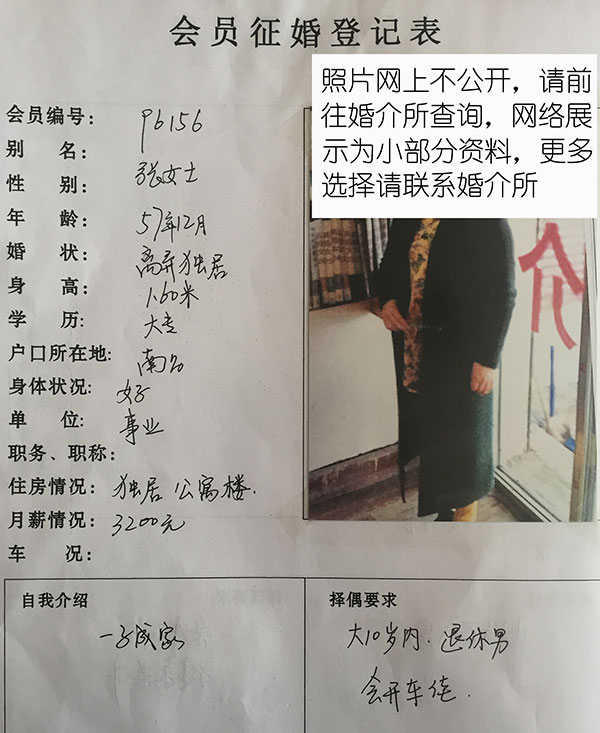 会员征婚登记表
照片网上不公开，请前
往婚介所查询，网络展
示为小部分资料，更多
选择请联系婚介所
会员编号： 96156
别 名：
性 别： 张女士
年 龄： 57年12月
婚 状： 离异独居
身 高： 1.60米
学 历： 大专
户口所在地: 南
身体状况: 好
单 位: 事业
职务、职称：
住房情况： 独居 公寓楼.
月薪情况: 3200元
车 况:
介
自我介绍
一子成家
择偶要求
大10岁内. 退休男
会开车佳.